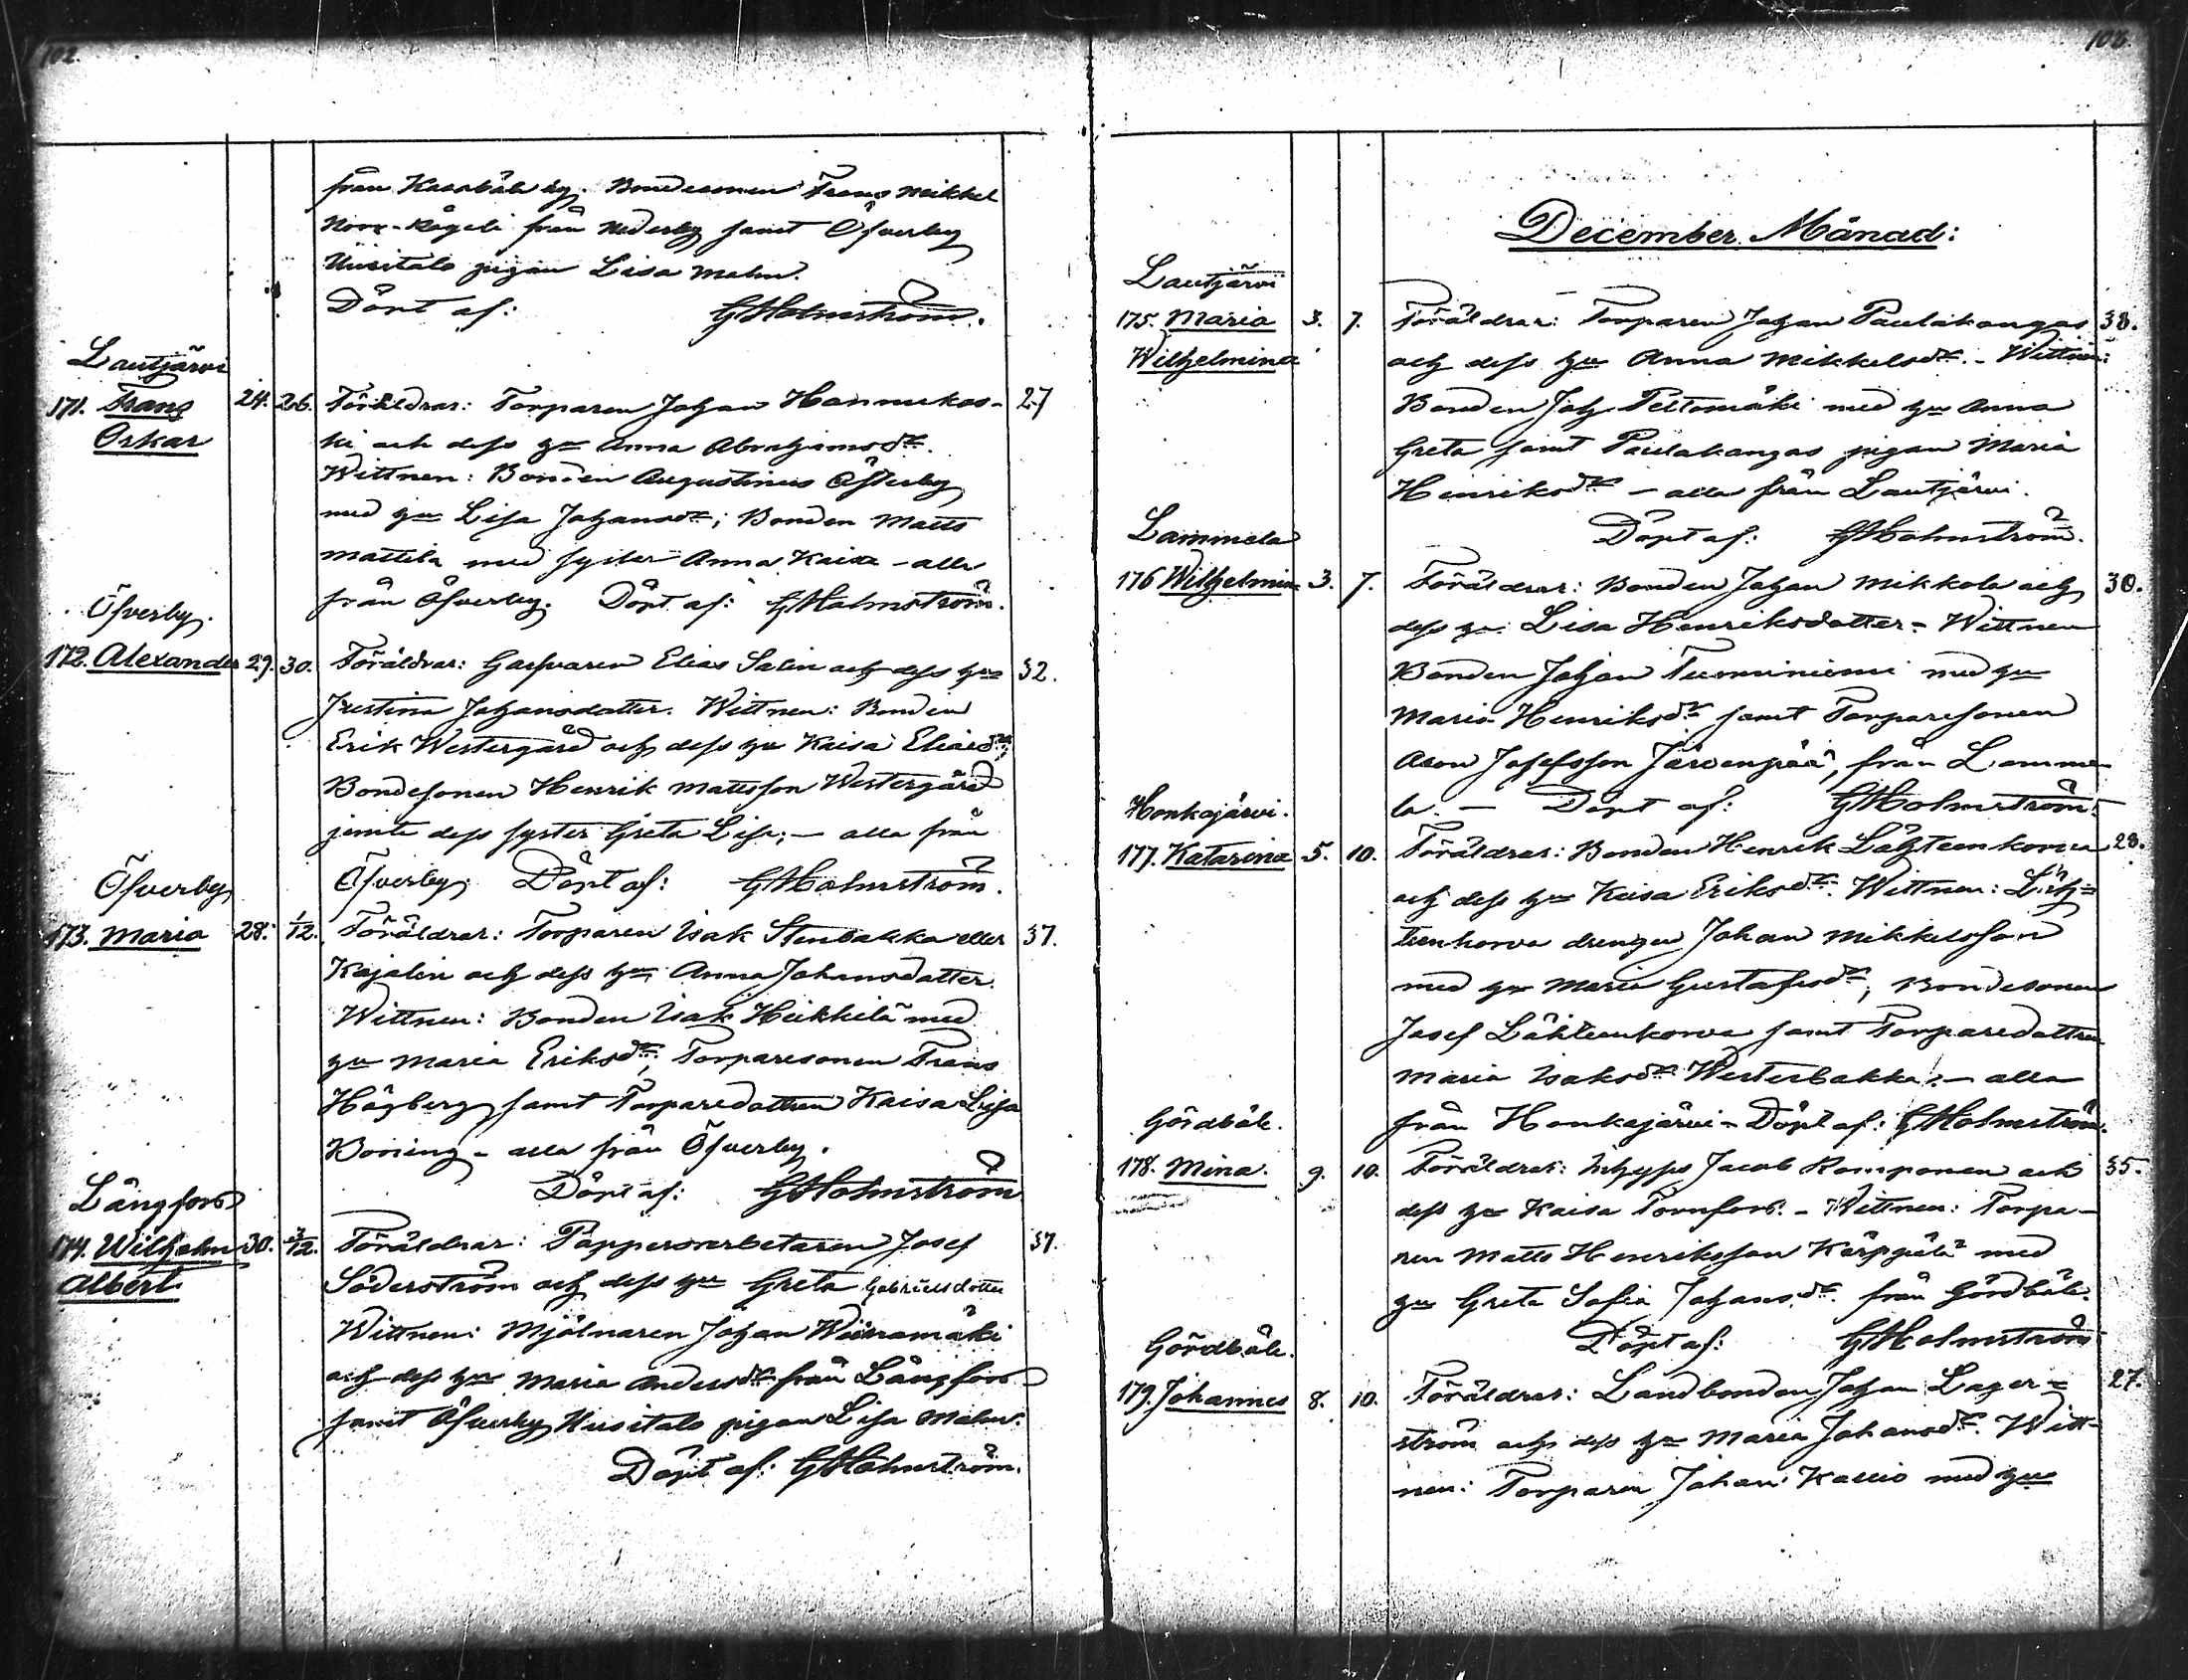 102.
från Kasaböle by. Bondesonen Frans Mikkel
Norr-Rågeli från Nederby samt Öfverby
Uusitalo pigan Lisa Malm.
Döpt af: GHolmström.
Lautjärvi
171. Frans Oskar 24. 26. Föräldrar: Torparen Johan Hannukos- 27
ki och dess hu Anna Abrahamsdr.
Wittnen: Bonden Augustinus Österby
med hu Lisa Johansdr; Bonden Matts
Mattila med syster Anna Kaisa - alla
från Öfverby. Döpt af: GHolmström.
Öfverby.
172. Alexander 29. 30. Föräldrar: Garfvaren Elias Salin och dess hu 32.
Justina Johansdotter. Wittnen: Bonden
Erik Westergård och dess hu Kaisa Eliasdr;
Bondesonen Henrik Mattsson Westergård
jemte dess syster Greta Lisa; — alla från
Öfverby. Döpt af: GHolmström.
Öfverby
173. Maria 28. 1/12. Föräldrar: Torparen Isak Stenbakka eller 37.
Kajalin och dess hu Anna Johansdotter.
Wittnen: Bonden Isak Heikkilä med
hu Maria Eriksdr; Torparesonen Frans
Högberg samt Torparedottren Kaisa Lisa
Boning - alla från Öfverby.
Döpt af: GHolmström
Långfors
174. Wilhelm Albert. 30. 3/12. Föräldrar: Pappersarbetaren Josef 37.
Söderström och dess hu Greta Gabrielsdotter
Wittnen: Mjölnaren Johan Wainamäki
och dess hu Maria Andersdr från Långfors
samt Öfverby Uusitalo pigan Lisa Malm.
Döpt af: GHolmström.
103.
December Månad:
Lautjärvi
175. Maria Wilhelmina 3. 7. Föräldrar: Torparen Johan Paulakangas 38.
och dess hu Anna Mikkelsdr. - Wittnen:
Bonden Joh. Peltomäki med hu Anna
Greta samt Paulakangas pigan Maria
Henriksdr — alla från Lautjärvi.
Döpt af: GHolmström.
Lammela
176 Wilhelmina 3. 7. Föräldrar: Bonden Johan Mikkola och 30.
dess hu Lisa Henriksdotter - Wittnen
Bonden Johan Tuominiemi med hu
Maria Henriksdr samt Torparesonen
Aron Josefsson Järvenpää, från Lamme
la. — Döpt af: GHolmström.
Honkajärvi.
177. Katarina 5. 10. Föräldrar: Bonden Henrik Lähteenkorva 28.
och dess hu Kaisa Eriksdr. Wittnen: Läh-
teenkorva drengen Johan Mikkelsson
med hu Maria Gustafsdr; Bondesonen
Josef Lähteenkorva samt Torparedottren
Maria Isaksdr Westerbakka; — alla
från Honkajärvi - Döpt af: GHolmström.
Gördböle.
178. Mina. 9. 10. Föräldrar: Inhyses Jacob Komponen och 35.
dess hu Kaisa Tornfors. - Wittnen: Torpa-
ren Matts Henriksson Kärppälä med
hu Greta Sofia Johansdr. från Gördböle.
Döpt af: GHolmström
Gördböle.
179. Johannes 8. 10. Föräldrar: Landbonden Johan Lager- 27.
ström och dess hu Maria Johansdr. Witt-
nen: Torparen Johan Kallio med hu